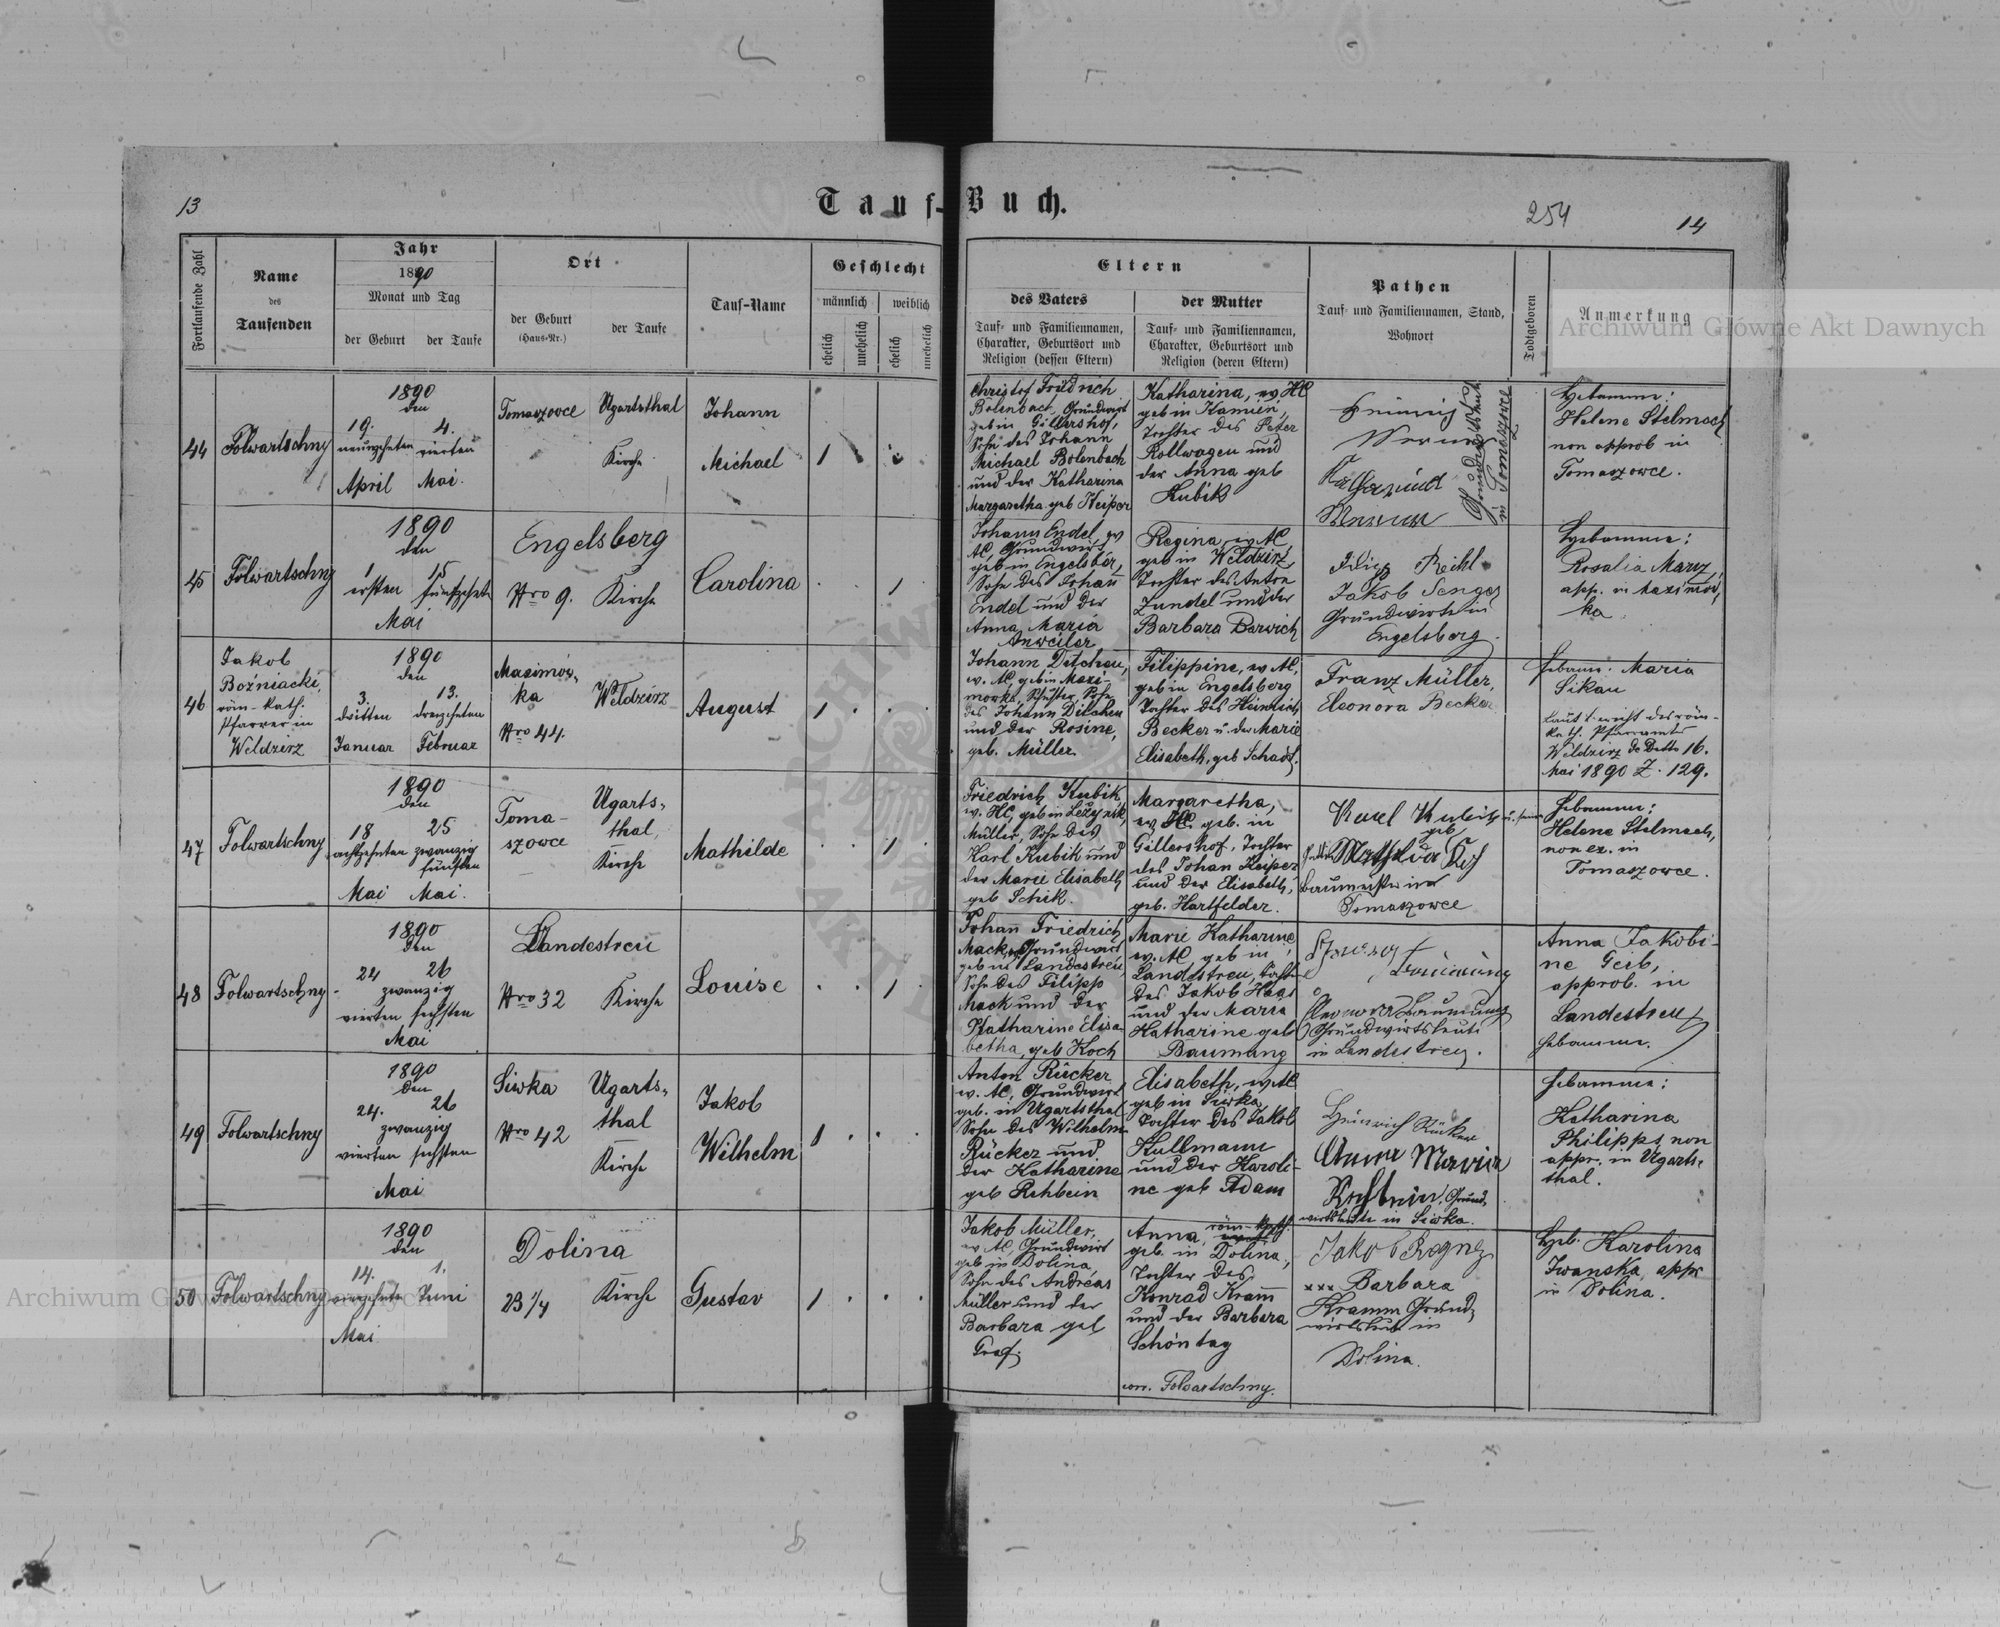 13
Tauf-Buch.
254
14
Fortlaufende Zahl
Name
des
Taufenden
Jahr
1890
Monat und Tag
der Geburt
der Taufe
Ort
der Geburt
(Haus-Nr.)
der Taufe
Tauf-Name
Geschlecht
männlich
weiblich
ehelich
unehelich
ehelich
unehelich
Eltern
des Vaters
Tauf- und Familiennamen,
Charakter, Geburtsort und
Religion (dessen Eltern)
der Mutter
Tauf- und Familiennamen,
Charakter, Geburtsort und
Religion (deren Eltern)
Pathen
Tauf- und Familiennamen, Stand,
Wohnort
Todtgeboren
Anmerkung
Archiwum Główne Akt Dawnych
44
Folwartschny
1890
den
19.
neunzehnten
April
4.
vierten
Mai.
Tomaszowce
Ugartsthal
Kirche
Johann
Michael
1
Christof Friedrich
Bolenbach, Grundwirt
geb in Gillershof,
Sohn des Johann
Michael Bolenbach
und der Katharina
Margaretha geb Keiper
Katharina, ev HC
geb in Kamień,
Tochter des Peter
Rollwagen und
der Anna geb
Kubik
Grundwirtsleute
in Tomaszowce
Hebamme:
Helene Stelmach
non approb in
Tomaszowce.
45
Folwartschny
1890
den
1
ersten
15
fünfzehnten
Mai
Engelsberg
Nro 9.
Kirche
Carolina
1
Johann Endel, ev
AC, Grundwirt
geb in Engelsberg,
Sohn des Johann
Endel und der
Anna Maria
Anweiler
Regina, ev AC
geb in Weldzirz
Tochter des Anton
Zundel und der
Barbara Barwich
Filip Reihl
Jakob Senger
Grundwirte in
Engelsberg.
Hebamme:
Rosalia Manz,
app. in Maximow,
ka
46
Jakob
Boźniacki,
röm-kath.
Pfarrer in
Weldzirz
1890
den
3.
dritten
Januar
13.
dreizehnten
Februar
Maximow,
ka
Nro 44.
Weldzirz
August
1
Johann Ditchen,
ev. AC, geb in Maxi-
mowka, Schuster, Sohn
des Johann Ditchen
und der Rosine,
geb. Müller.
Filippine, ev AC,
geb in Engelsberg
Tochter des Heinrich
Becker u. der Marie
Elisabeth, geb Schadt.
Franz Müller,
Eleonora Becker
Hebam. Maria
Sikau
Laut Bericht des röm-
kath. Pfarramts
Weldzirz de Datto 16.
Mai 1890 Z. 129.
47
Folwartschny
1890
den
18
achtzehnten
Mai
25
zwanzig
fünften
Mai.
Toma-
szowce
Ugarts,
thal,
Kirche
Mathilde
1
Friedrich Kubik
ev. HC, geb in
Müller, Sohn des
Karl Kubik und
der Marie Elisabeth
geb Schik.
Margaretha,
ev HC. geb. in
Gillershof, Tochter
des Johan Keiper
und der Elisabeth,
geb. Hartfelder.
Karl Kubik
geb
in
Tomaszowce
Hebamme:
Helene Stelmach,
non ex. in
Tomaszowce.
48
Folwartschny
1890
den
24
26
zwanzig
vierten sechsten
Mai
Landestreu
Nro 32
Kirche
Louise
1
Johann Friedrich
Mack, Grundwirt
geb in Landestreu,
Sohn des Filipp
Mack und der
Katharine Elisa-
betha, geb Koch
Marie Katharine,
ev. AC geb in
Landestreu, Tochter
des Jakob Haas
und der Maria
Katharine geb
Baumung
Baumung
Eleonora Baumung
Grundwirtsleute
in Landestreu.
Anna Jakobi-
ne Geib,
approb. in
Landestreu
Hebamme.
49
Folwartschny
1890
den
24.
26
zwanzig
vierten sechsten
Mai
Siwka
Nro 42
Ugarts,
thal
Kirche
Jakob
Wilhelm
1
Anton Rücker
ev. AC, Grundwirt
geb. in Ugartsthal
Sohn des Wilhelm
Rücker und
der Katharine
geb Rehbein
Elisabeth, ev AC
geb in Siwka
Tochter des Jakob
Kullmann
und der Karoli-
ne geb Adam
Heinrich Rücker
Anna Maria
Grund,
wirtsleute in Siwka.
Hebamme:
Katharina
Philipps, non
appr. in Ugarts,
thal.
50
Folwartschny
1890
den
14.
vierzehnten
Mai
1.
Juni
Dolina
23 1/4
Kirche
Gustav
1
Jakob Müller,
ev AC, Grundwirt
geb in Dolina,
Sohn des Andreas
Müller und der
Barbara geb
Graf.
Anna, röm-kath.
geb. in Dolina,
Tochter des
Konrad Kramm
und der Barbara
Schöntag
Jakob
xxx Barbara
Kramm Grund,
wirtsleute in
Dolina.
Heb. Karolina
Iwanska, appr
in Dolina.
corr. Folwartschny.
Archiwum Główne Akt Dawnych